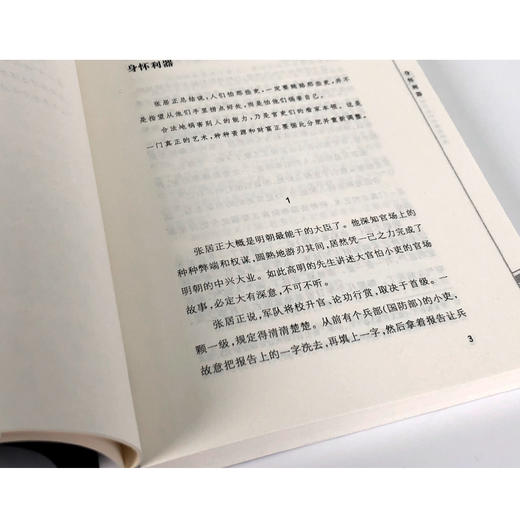 身怀利器
张居正总结说，人们怕那些吏，一定要贿赂那些吏，并不
是指望从他们手里捞点好处，而是怕他们祸害自己。
合法地祸害别人的能力，乃是官吏们的看家本领。这是
一门真正的艺术，种种资源和财富正要据此分肥并重新调整。
1
张居正大概是明朝最能干的大臣了。他深知官场上的
种种弊端和权谋，圆熟地游刃其间，居然凭一己之力完成了
明朝的中兴大业。如此高明的先生讲述大官怕小吏的官场
故事，必定大有深意，不可不听。
张居正说，军队将校升官、论功行赏，取决于首级。一
颗一级，规定得清清楚楚。从前有个兵部(国防部)的小吏，
故意把报告上的一字洗去，再填上一字，然后拿着报告让兵
3
身怀利器